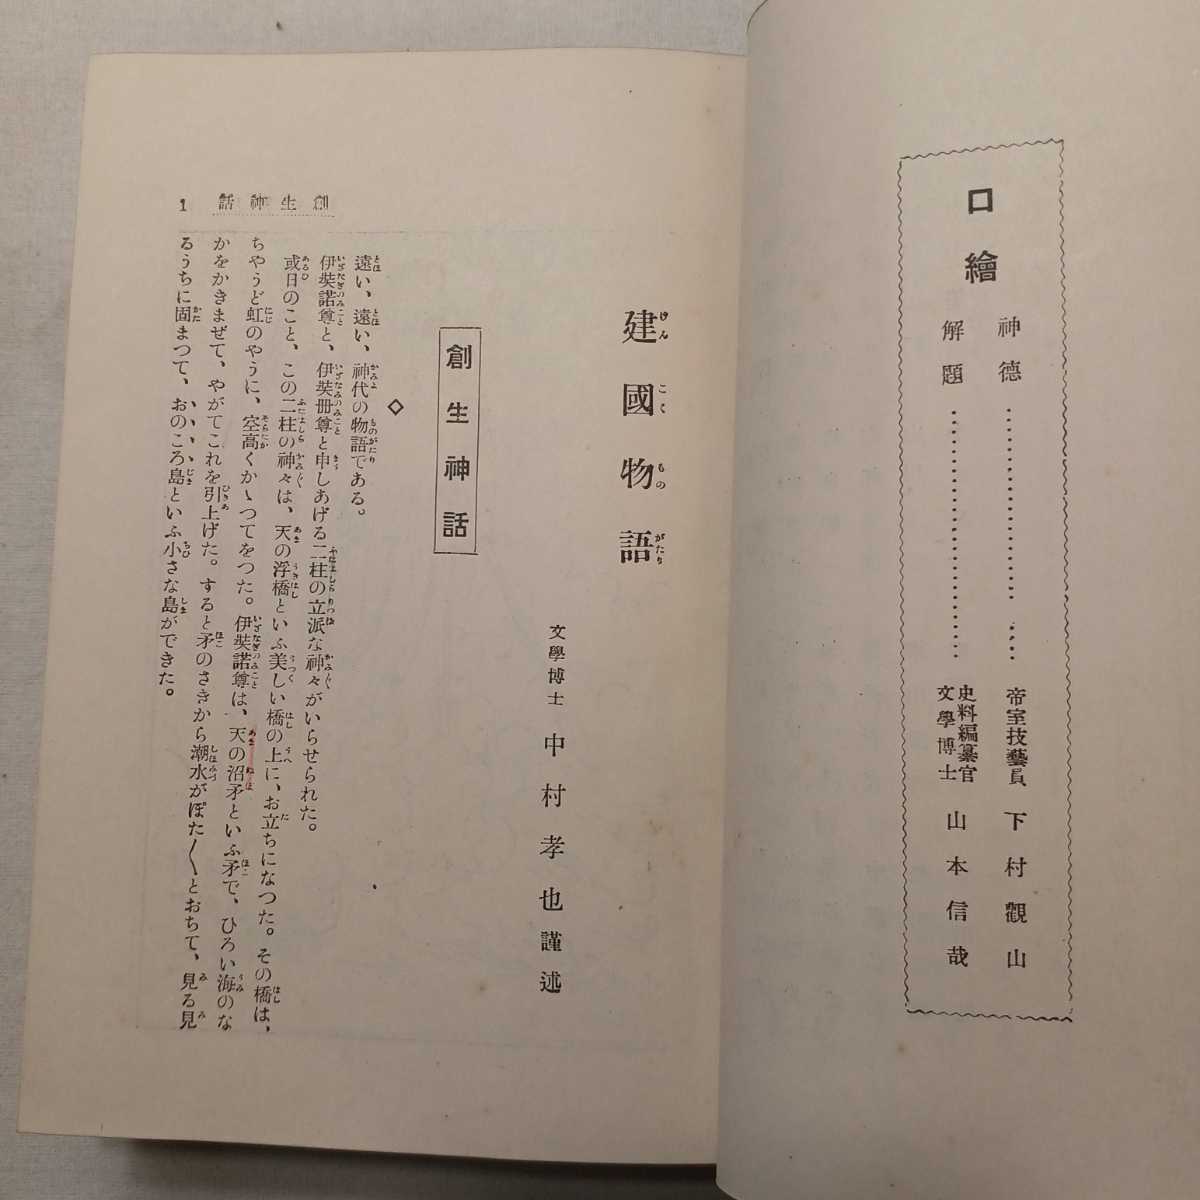 口繪
神德……………………帝室技藝員 下村觀山
解題……………………史料編纂官 文學博士 山本信哉
建國物語
文學博士 中村孝也謹述
創生神話
◇
遠い、遠い、神代の物語である。
伊弉諾尊と、伊弉冊尊と申しあげる二柱の立派な神々がいらせられた。
或日のこと、この二柱の神々は、天の浮橋といふ美しい橋の上に、お立ちになつた。その橋は、
ちやうど虹のやうに、空高くかゝつてをつた。伊弉諾尊は、天の沼矛といふ矛で、ひろい海のな
かをかきまぜて、やがてこれを引上げた。すると矛のさきから潮水がぽた〱とおちて、見る見
るうちに固まつて、おのころ島といふ小さな島ができた。
創生神話 1